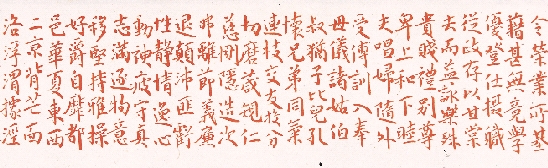 令榮業所基
藉甚無竟學
優登仕攝職
從政存以甘棠
去而益詠樂殊
貴賤禮別尊
卑上和下睦
夫唱婦隨外
受傅訓入奉
母儀諸姑伯
叔猶子比兒孔
懷兄弟同氣
連枝交友投分
切磨箴規仁
慈惻隱造次
弗離節義廉
退顛沛匪虧
性靜情逸心
動神疲守真
志滿逐物意
移堅持雅操
好爵自縻都
邑華夏東西
二京背芒面
洛浮渭據涇